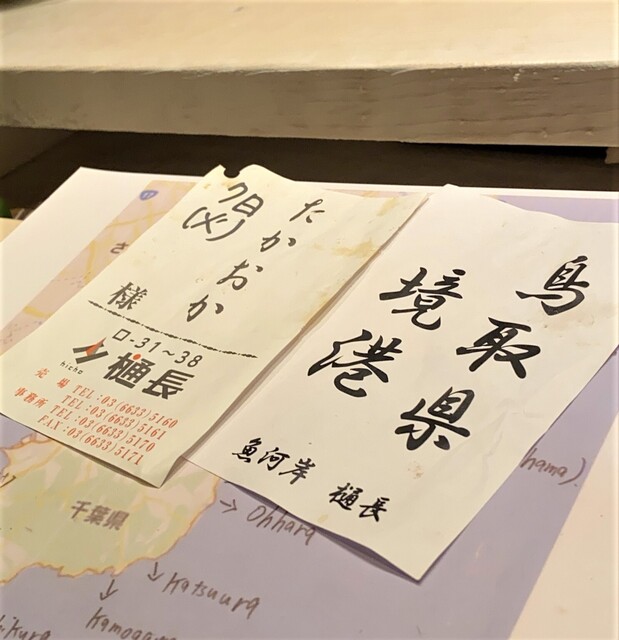 たかおか
7日
(火)
様
ロ-31～38
hicho
樋長
売場 TEL:03(6633)5160
TEL:03(6633)5161
事務所 TEL:03(6633)5170
FAX:03(6633)5171
鳥取県
境港
魚河岸 樋長
さ
千葉県
hama).
→ Ohhara
Katsuura
Kamoga
kura